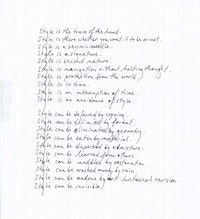 Style is the trace of the hand.
Style is there whether you want it to be or not.
Style is a seismic needle.
Style is a signature.
Style is second nature.
Style is navigation without halting thought.
Style is protection from the world.
Style is in time.
Style is an interruption of time.
Style is an avoidance of style.
Style can be deferred by copying.
Style can be delimited by format.
Style can be eliminated by geometry.
Style can be eaten by material.
Style can be disposed by admixture.
Style can be learned from others.
Style can be meddled by
Style can be washed away by rain.
Style can be undone by historical revision.
Style can be invisible.